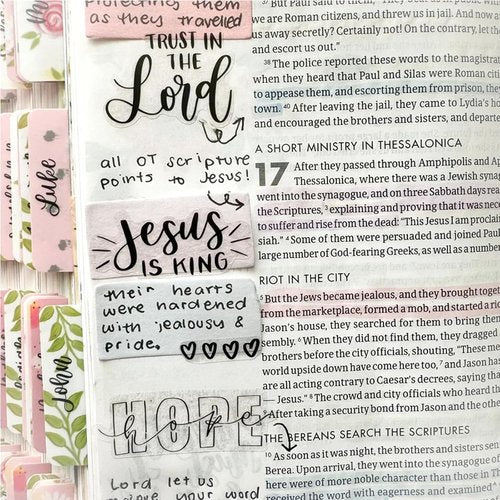 protecting them
as they travelled
TRUST IN
THE
Lord
all OT scripture
points to Jesus!
Jesus
IS KING
their hearts
were hardened
with jealousy &
pride.
HOPE
hope
Lord let us
your word
Luke
John
said to them,
we are Roman citizens, and threw us in jail. And now
us away secretly? Certainly not! On the contrary, let th
and escort us out."
38 The police reported these words to the magistrat
when they heard that Paul and Silas were Roman ci
to appease them, and escorting them from prison, the
town. 40 After leaving the jail, they came to Lydia's ho
and encouraged the brothers and sisters, and depart
A SHORT MINISTRY IN THESSALONICA
17 After they passed through Amphipolis and Ap
Thessalonica, where there was a Jewish synag
went into the synagogue, and on three Sabbath days rea
the Scriptures, 3 explaining and proving that it was nec
to suffer and rise from the dead: "This Jesus I am proclai
siah." 4 Some of them were persuaded and joined Paul
large number of God-fearing Greeks, as well as a number
RIOT IN THE CITY
5 But the Jews became jealous, and they brought toget
from the marketplace, formed a mob, and started a rio
Jason's house, they searched for them to bring them
sembly. 6 When they did not find them, they dragged
brothers before the city officials, shouting, "These me
world upside down have come here too, 7 and Jason ha
are all acting contrary to Caesar's decrees, saying tha
— Jesus." 8 The crowd and city officials who heard th
After taking a security bond from Jason and the othe
THE BEREANS SEARCH THE SCRIPTURES
10 As soon as it was night, the brothers and sisters
Berea. Upon arrival, they went into the synagogue of
here were of more noble character than those in Th
received the word with eagerness and examined